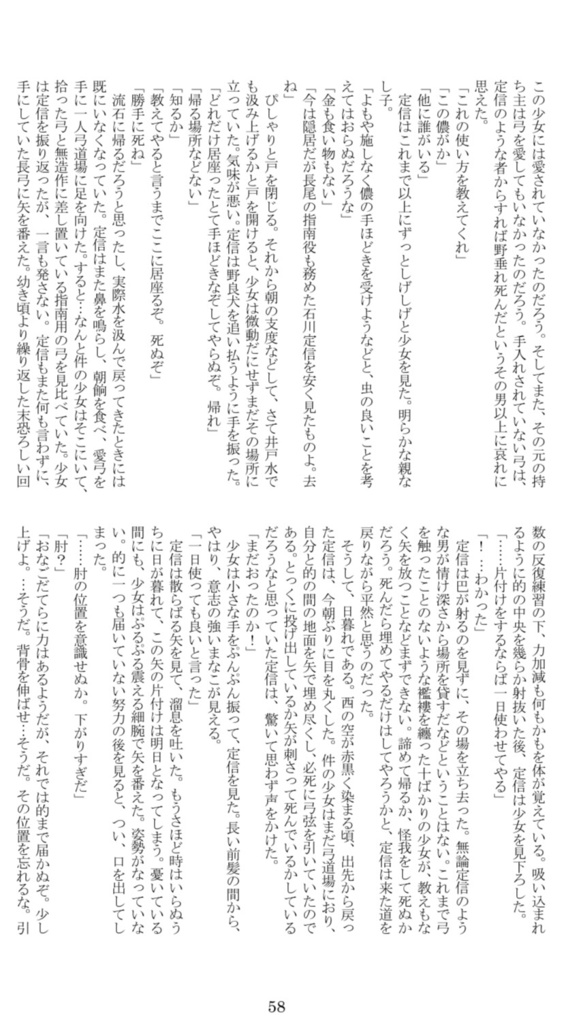 この少女には愛されていなかったのだろう。そしてまた、その元の持
ち主は弓を愛してもいなかったのだろう。手入れされていない弓は、
定信のような者からすれば野垂れ死んだというその男以上に哀れに
思えた。
「これの使い方を教えてくれ」
「この儂がか」
「他に誰がいる」
　定信はこれまで以上にずっとしげしげと少女を見た。明らかな親な
し子。
「よもや施しなく儂の手ほどきを受けようなどと、虫の良いことを考
えてはおらぬだろうな」
「金も食い物もない」
「今は隠居だが長尾の指南役も務めた石川定信を安く見たものよ。去
ね」
　ぴしゃりと戸を閉じる。それから朝の支度などして、さて井戸水で
も汲み上げるかと戸を開けると、少女は微動だにせずまだその場所に
立っていた。気味が悪い。定信は野良犬を追い払うように手を振った。
「どれだけ居座ったとて手ほどきなぞしてやらぬぞ。帰れ」
「帰る場所などない」
「知るか」
「教えてやると言うまでここに居座るぞ。死ぬぞ」
「勝手に死ね」
　流石に帰るだろうと思ったし、実際水を汲んで戻ってきたときには
既にいなくなっていた。定信はまた鼻を鳴らし、朝餉を食べ、愛弓を
手に一人弓道場に足を向けた。すると…なんと件の少女はそこにいて、
拾った弓と無造作に差し置いている指南用の弓を見比べていた。少女
は定信を振り返ったが、一言も発さない。定信もまた何も言わずに、
手にしていた長弓に矢を番えた。幼き頃より繰り返した末恐ろしい回
数の反復練習の下、力加減も何もかもを体が覚えている。吸い込まれ
るように的の中央を幾らか射抜いた後、定信は少女を見下ろした。
「……片付けをするならば一日使わせてやる」
「！…わかった」
　定信は巴が射るのを見ずに、その場を立ち去った。無論定信のよう
な男が情け深さから場所を貸すだなどということはない。これまで弓
を触ったことのないような襤褸を纏った十ばかりの少女が、教えもな
く矢を放つことなどまずできない。諦めて帰るか、怪我をして死ぬか
だろう。死んだら埋めてやるだけはしてやろうかと、定信は来た道を
戻りながら茫然と思うのだった。
　そうして、日暮れである。西の空が赤黒く染まる頃、出先から戻っ
た定信は、今朝ぶりに目を丸くした。件の少女はまだ弓道場におり、
自分と的の間の地面を矢で埋め尽くし、必死に弓弦を引いていたので
ある。とっくに投げ出しているか矢が刺さって死んでいるかしている
だろうなと思っていた定信は、驚いて思わず声をかけた。
「まだおったのか！」
　少女は小さな手をぶんぶん振って、定信を見た。長い前髪の間から、
やはり、意志の強いまなこが見える。
「一日使っても良いと言った」
　定信は散らばる矢を見て、溜息を吐いた。もうさほど時はいらぬう
ちに日が暮れて、この矢の片付けは明日となってしまう。憂いている
間にも、少女はぷるぷる震える細腕で矢を番えた。姿勢がなっていな
い。的に一つも届いていない努力の後を見ると、つい、口を出してし
まった。
「……肘の位置を意識せぬか。下がりすぎだ」
「肘？」
「おなごだてらに力はあるようだが、それでは的まで届かぬぞ。少し
上げよ。…そうだ。背骨を伸ばせ…そうだ。その位置を忘れるな。引
58